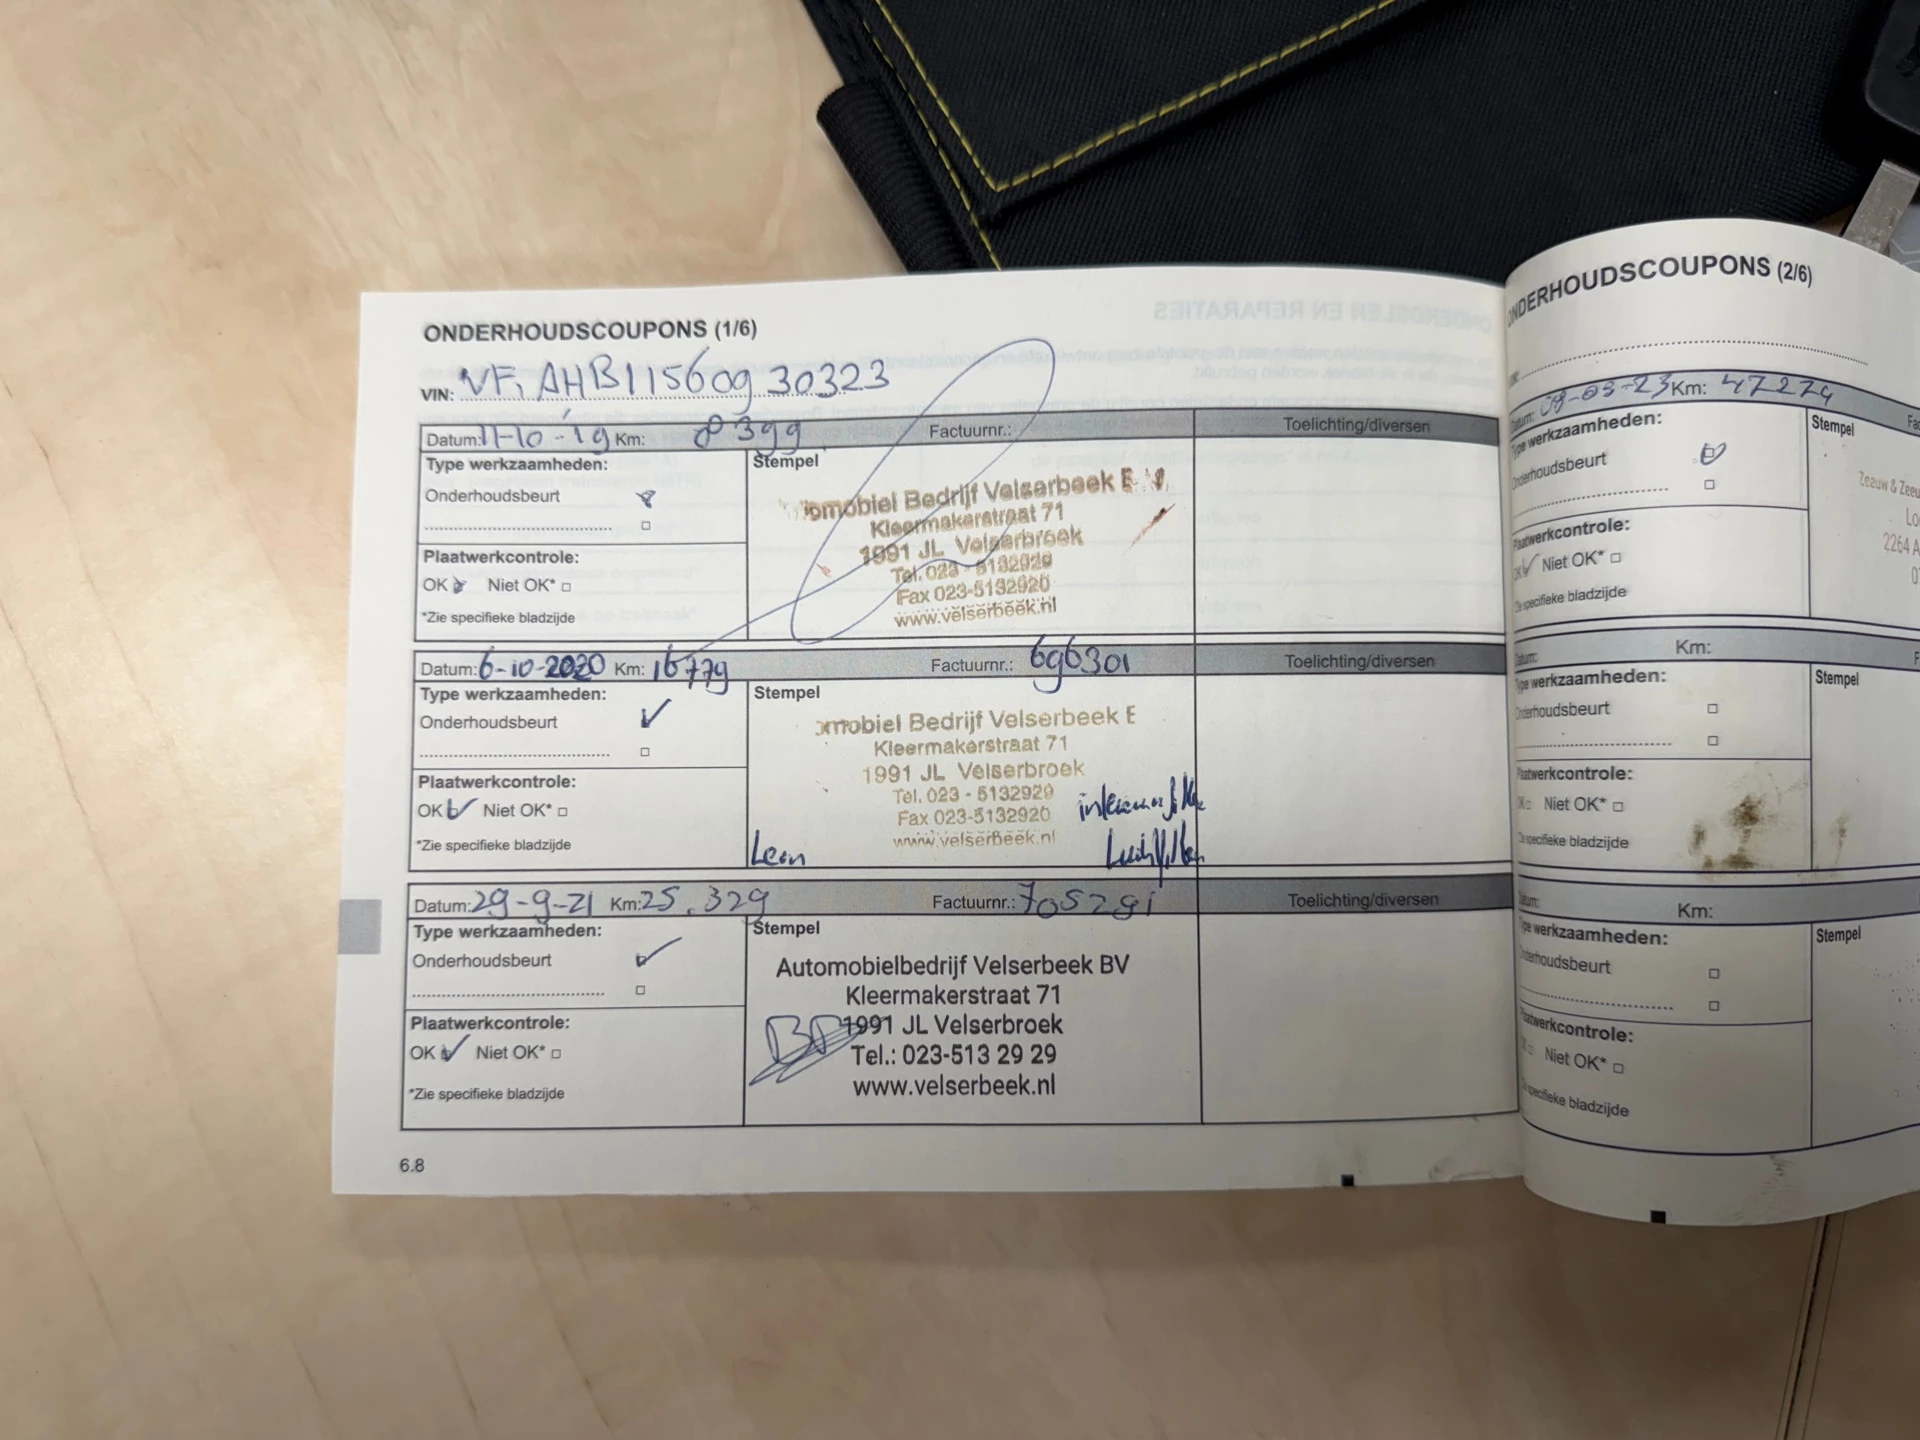 ONDERHOUDSCOUPONS (1/6)
VIN: VF1AHB11560930323
Datum: 11-10-19 Km: 8399 Factuurnr.: Toelichting/diversen
Type werkzaamheden: Stempel
Onderhoudsbeurt
Plaatwerkcontrole:
OK Niet OK*
*Zie specifieke bladzijde
omobiel Bedrijf Velserbeek B
Kleermakerstraat 71
1991 JL Velserbroek
Tel. 023 - 5132929
Fax 023-5132920
www.velserbeek.nl
Datum: 6-10-2020 Km: 16779 Factuurnr.: 696301 Toelichting/diversen
Type werkzaamheden: Stempel
Onderhoudsbeurt
Plaatwerkcontrole:
OK Niet OK*
*Zie specifieke bladzijde
omobiel Bedrijf Velserbeek B
Kleermakerstraat 71
1991 JL Velserbroek
Tel. 023 - 5132929
Fax 023-5132920
www.velserbeek.nl
Leon
Datum: 29-9-21 Km: 25.329 Factuurnr.: 705291 Toelichting/diversen
Type werkzaamheden: Stempel
Onderhoudsbeurt
Plaatwerkcontrole:
OK Niet OK*
*Zie specifieke bladzijde
Automobielbedrijf Velserbeek BV
Kleermakerstraat 71
1991 JL Velserbroek
Tel.: 023-513 29 29
www.velserbeek.nl
6.8
ONDERHOUDSCOUPONS (2/6)
Datum: 08-03-23 Km: 47274
Type werkzaamheden: Stempel
Onderhoudsbeurt
Plaatwerkcontrole:
OK Niet OK*
*Zie specifieke bladzijde
Zeeuw & Zeeu
Lo
2264 A
Datum: Km:
Type werkzaamheden: Stempel
Onderhoudsbeurt
Plaatwerkcontrole:
OK Niet OK*
*Zie specifieke bladzijde
Datum: Km:
Type werkzaamheden: Stempel
Onderhoudsbeurt
Plaatwerkcontrole:
OK Niet OK*
*Zie specifieke bladzijde